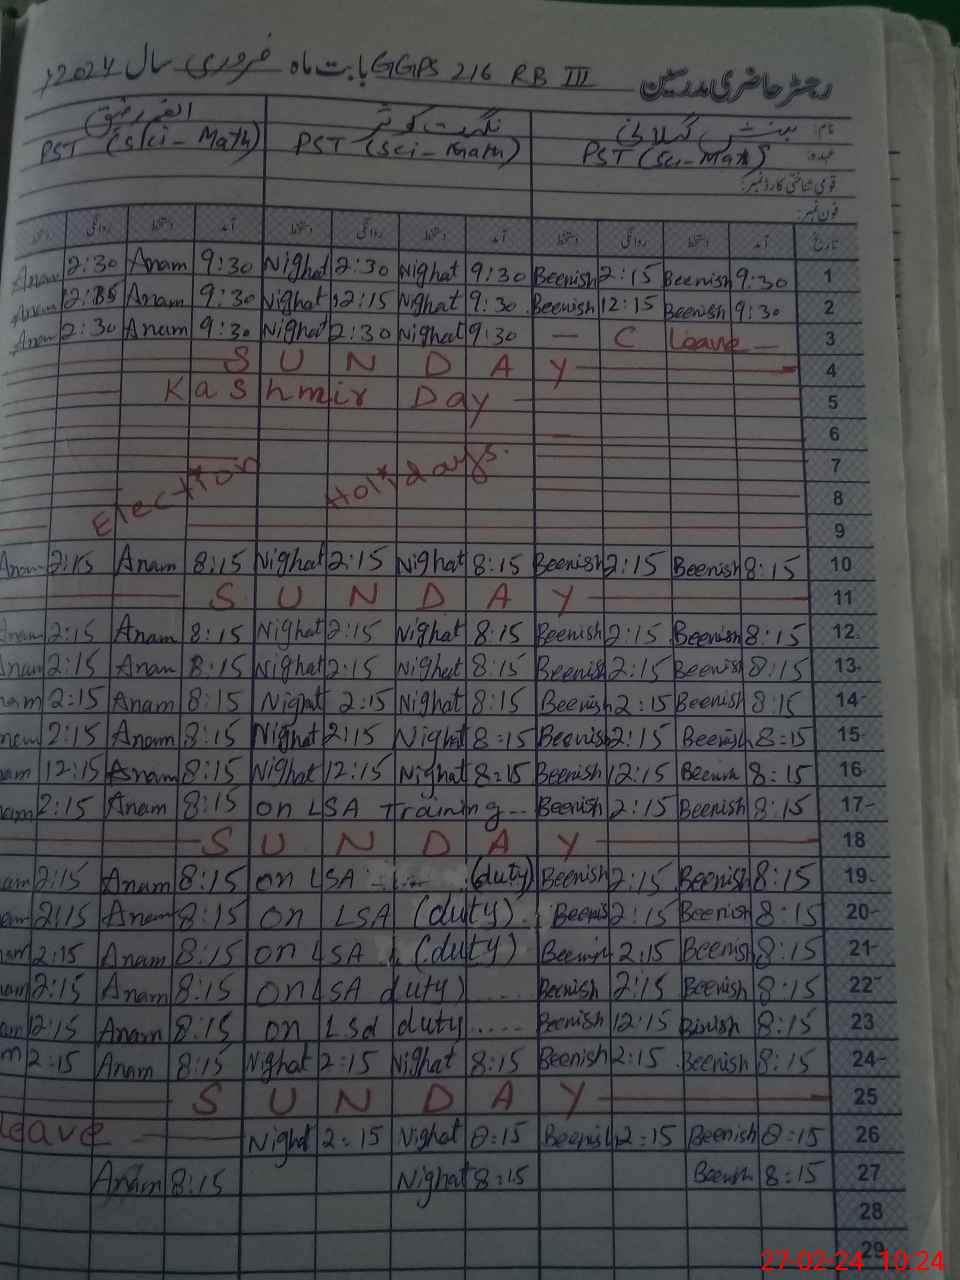 رجسٹر حاضری مدرسین GGPS 216 RB III بابت ماہ فروری سال 2024ء
نام: بینش گیلانی نگہت کوثر
عہدہ: PST (Sci-Mat) PST (Sci-Math) PST (Sci-Math)
قومی شناختی کارڈ نمبر:
فون نمبر:
تاریخ آمد دستخط روانگی دستخط آمد دستخط روانگی دستخط آمد دستخط روانگی
Anam 2:30 Anam 9:30 Nighat 2:30 Nighat 9:30 Beenish 2:15 Beenish 9:30 1
Anam Anam 9:30 Nighat 12:15 Nighat 9:30 Beenish 12:15 Beenish 9:30 2
Anam 2:30 Anam 9:30 Nighat 2:30 Nighat 9:30 — C Leave — 3
S U N D A Y 4
Kashmir Day 5
6
7
Election Holidays. 8
9
Anam 2:15 Anam 8:15 Nighat 2:15 Nighat 8:15 Beenish 2:15 Beenish 8:15 10
S U N D A Y 11
Anam 2:15 Anam 8:15 Nighat 2:15 Nighat 8:15 Beenish 2:15 Beenish 8:15 12
Anam 2:15 Anam 8:15 Nighat 2:15 Nighat 8:15 Beenish 2:15 Beenish 8:15 13
nam 2:15 Anam 8:15 Nighat 2:15 Nighat 8:15 Beenish 2:15 Beenish 8:15 14
nam 2:15 Anam 8:15 Nighat 2:15 Nighat 8:15 Beenish 2:15 Beenish 8:15 15
am 12:15 Anam 8:15 Nighat 12:15 Nighat 8:15 Beenish 12:15 Beenish 8:15 16
nam 2:15 Anam 8:15 on LSA Training... Beenish 2:15 Beenish 8:15 17
S U N D A Y 18
am 2:15 Anam 8:15 on LSA ..... (duty) Beenish 2:15 Beenish 8:15 19
am 2:15 Anam 8:15 on LSA (duty) .. Beenish 2:15 Beenish 8:15 20
am 2:15 Anam 8:15 on LSA (duty) Beenish 2:15 Beenish 8:15 21
nam 2:15 Anam 8:15 on LSA duty) .... Beenish 2:15 Beenish 8:15 22
am 12:15 Anam 8:15 on LSA duty .... Beenish 12:15 Binish 8:15 23
m 2:15 Anam 8:15 Nighat 2:15 Nighat 8:15 Beenish 2:15 Beenish 8:15 24
S U N D A Y 25
Leave — Nighat 2:15 Nighat 8:15 Beenish 2:15 Beenish 8:15 26
Anam 8:15 Nighat 8:15 Beenish 8:15 27
28
29
27-02-24 10:24